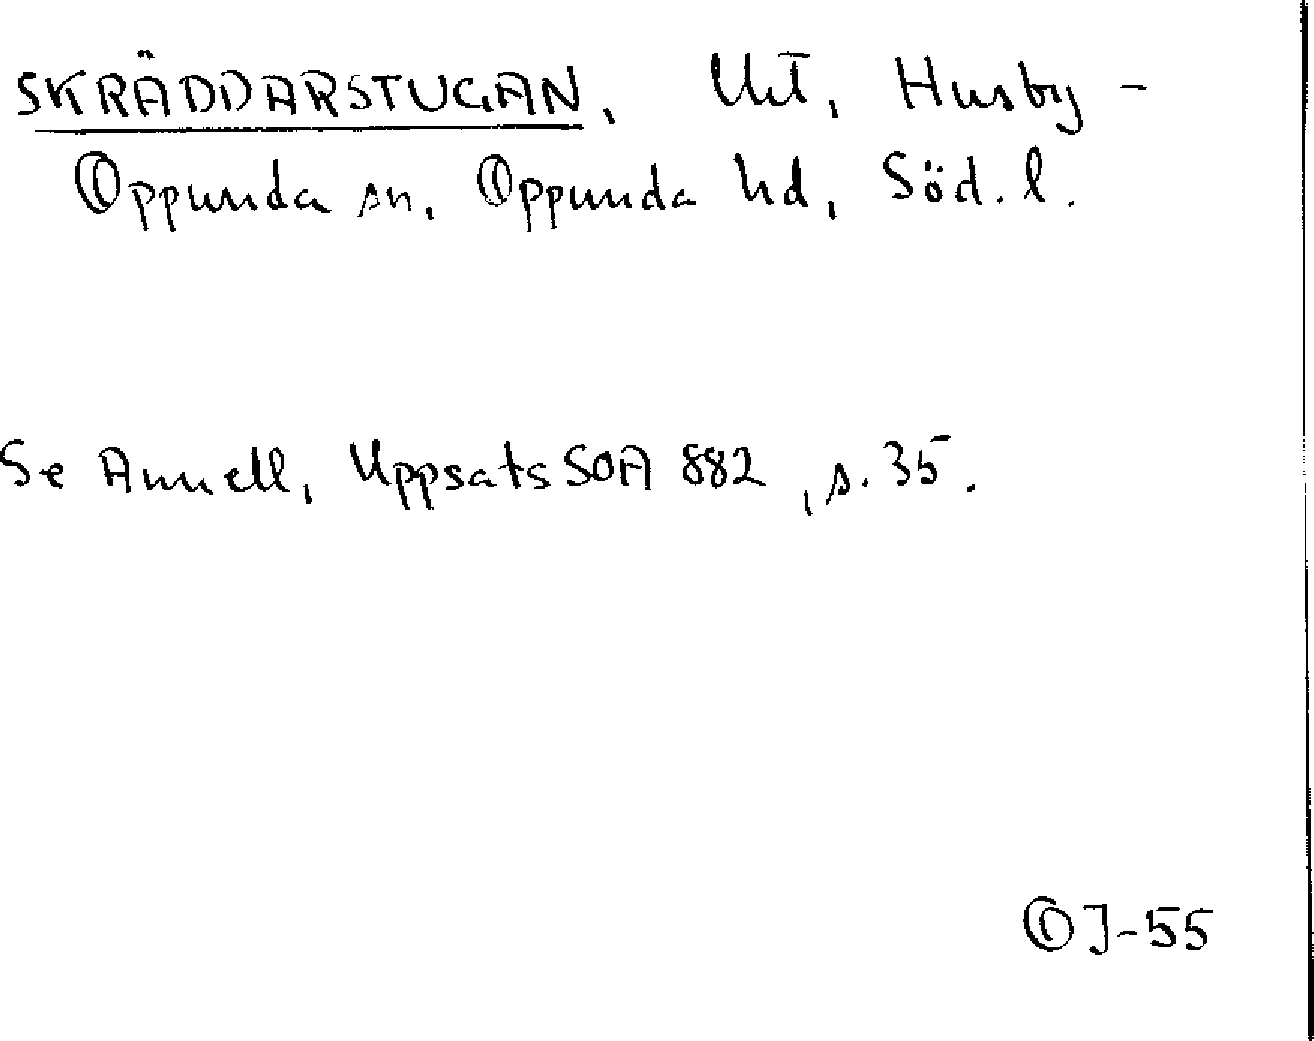 SKRÄDDARSTUGAN, Utt, Husby-
Oppunda sn, Oppunda hd, Söd. l.
Se Annell, Uppsats SOA 882, s. 35.
OJ-55